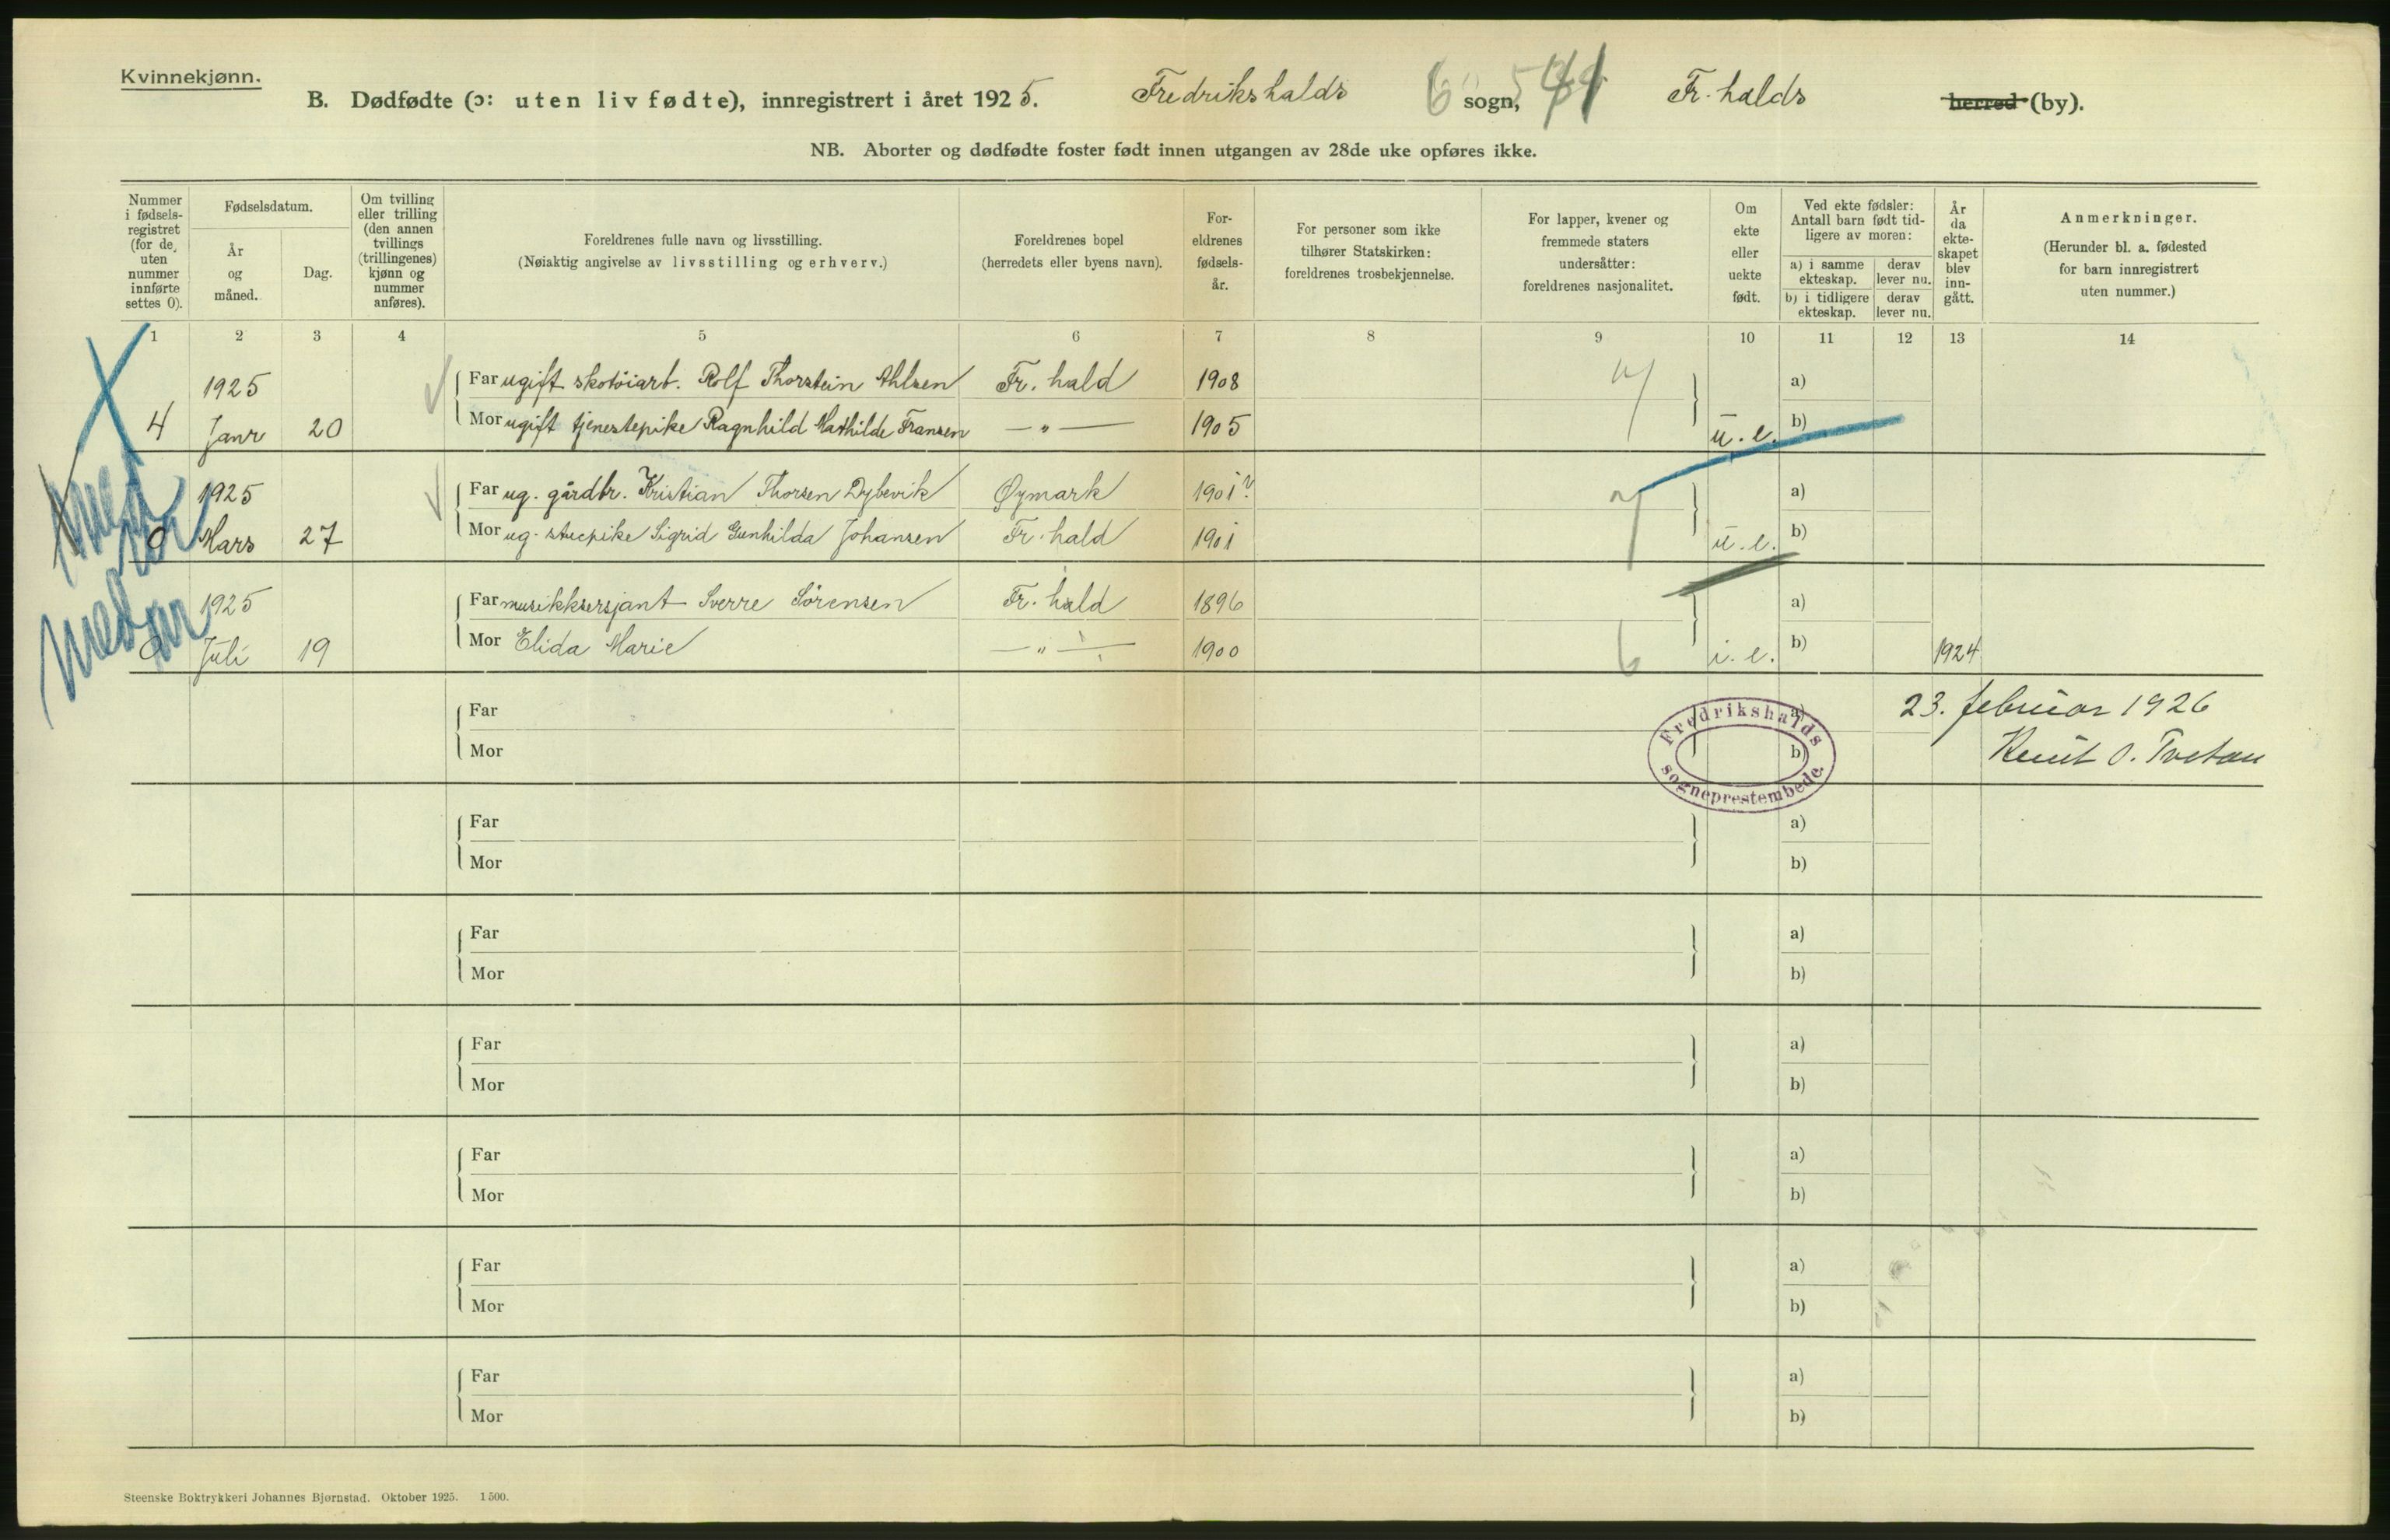 Kvinnekjønn.
B. Dødfødte (ɔ: uten liv fødte), innregistrert i året 1925. Fredrikshalds sogn, Fr. halds herred (by).
NB. Aborter og dødfødte foster født innen utgangen av 28de uke opføres ikke.
Nummer i fødsels-registret (for de uten nummer innførte settes 0).
Fødselsdatum.
År og måned.
Dag.
Om tvilling eller trilling (den annen tvillings (trillingenes) kjønn og nummer anføres).
Foreldrenes fulle navn og livsstilling.
(Nøiaktig angivelse av livsstilling og erhverv.)
Foreldrenes bopel
(herredets eller byens navn).
For-eldrenes fødsels-år.
For personer som ikke tilhører Statskirken: foreldrenes trosbekjennelse.
For lapper, kvener og fremmede staters undersåtter: foreldrenes nasjonalitet.
Om ekte eller uekte født.
Ved ekte fødsler: Antall barn født tid-ligere av moren:
a) i samme ekteskap. derav lever nu.
b) i tidligere ekteskap. derav lever nu.
År da ekte-skapet blev inn-gått.
Anmerkninger.
(Herunder bl. a. fødested for barn innregistrert uten nummer.)
1 2 3 4 5 6 7 8 9 10 11 12 13 14
1925 Far ugift skotöiarb. Rolf Thorstein Ahlsen Fr. hald 1908 a)
4 Janr 20 Mor ugift tjenestepike Ragnhild Mathilde Fransen — " — 1905 u. e. b)
1925 Far ug. gårdbr. Kristian Thorsen Dybevik Øymark 1901? a)
0 Mars 27 Mor ug. stuepike Sigrid Gunhilda Johansen Fr. hald 1901 u. e. b)
1925 Far musikksersjant Sverre Sörensen Fr. hald 1896 a)
0 Juli 19 Mor Elida Marie — " — 1900 i. e. b) 1924
Far a) 23. februar 1926
Mor b) Knut O. Tvetan
Fredrikshalds sogneprestembede.
Far a)
Mor b)
Far a)
Mor b)
Far a)
Mor b)
Far a)
Mor b)
Far a)
Mor b)
Far a)
Mor b)
Steenske Boktrykkeri Johannes Bjørnstad. Oktober 1925. 1500.